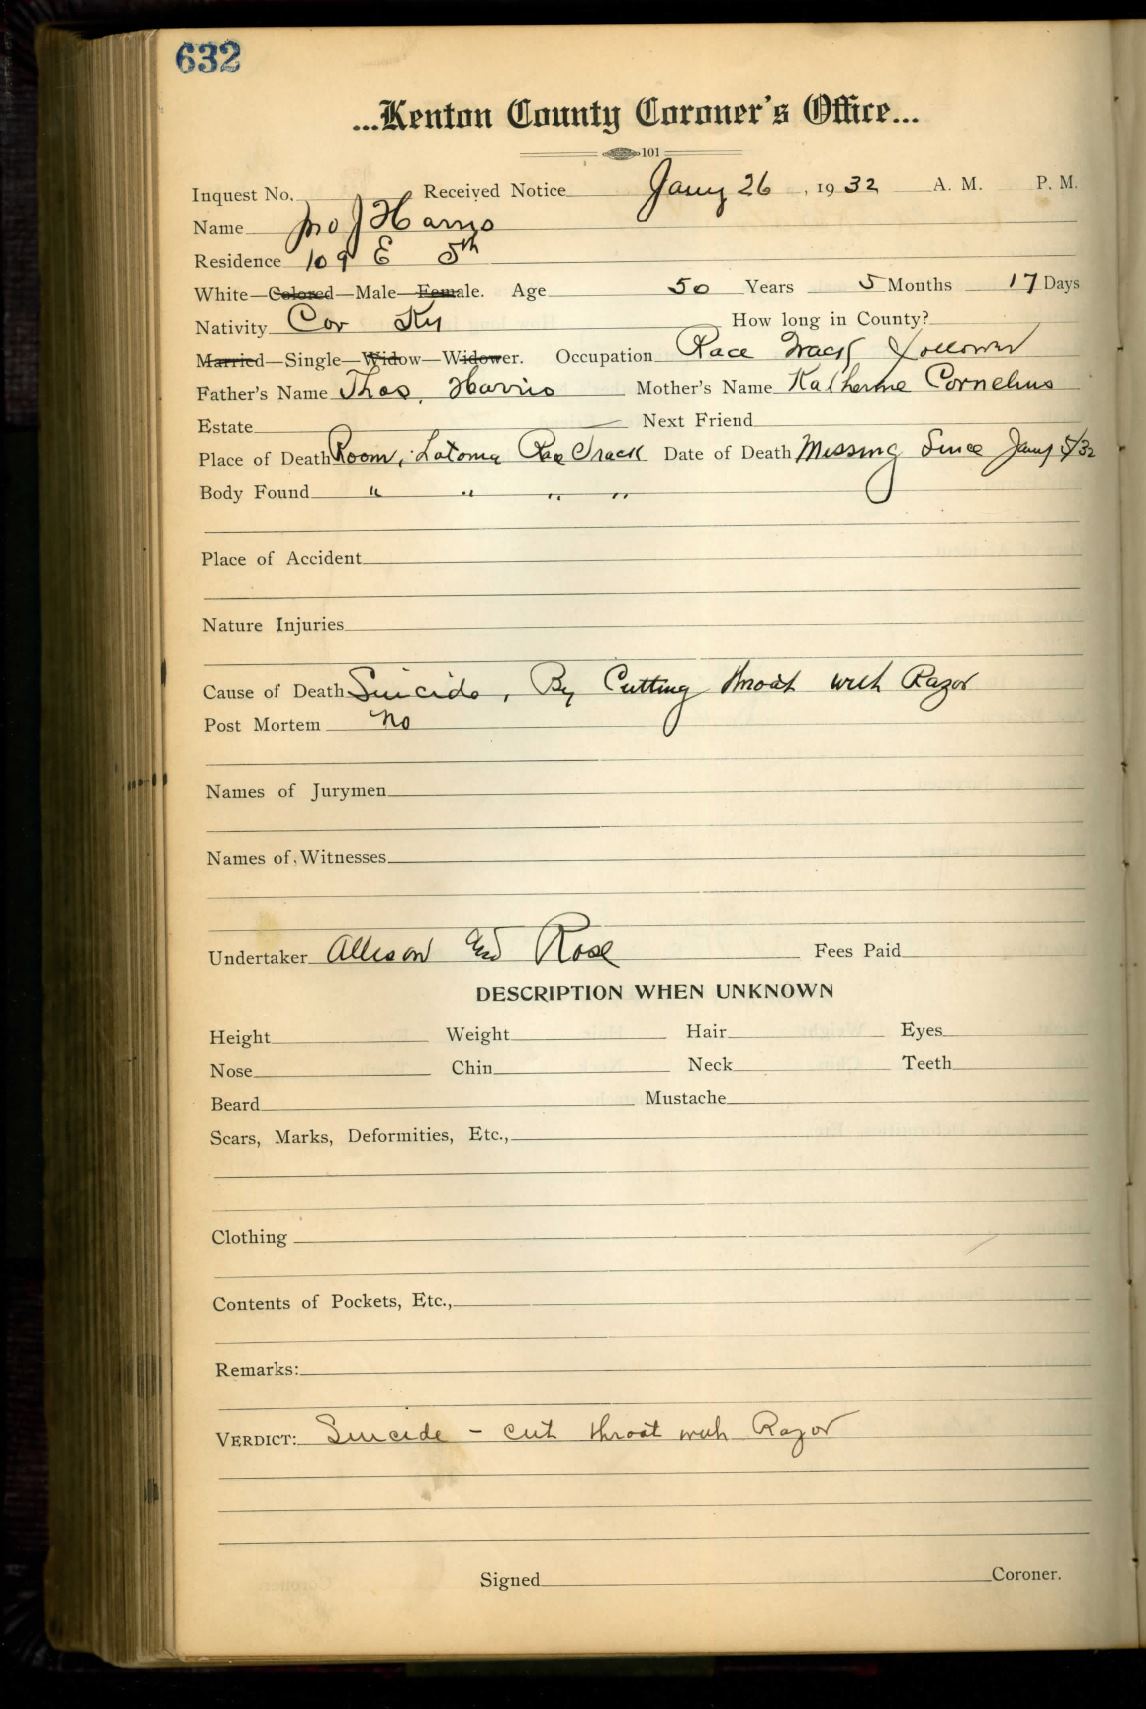 632
...Kenton County Coroner's Office...
101
Inquest No. Received Notice Jany 26, 1932 A. M. P. M.
Name Jno J Harris
Residence 109 E 5th
White—Colored—Male—Female. Age 50 Years 5 Months 17 Days
Nativity Cov Ky How long in County?
Married—Single—Widow—Widower. Occupation Race Track Follower
Father's Name Thos. Harris Mother's Name Katherine Cornelius
Estate Next Friend
Place of Death Room, Latonia Race Track Date of Death Missing Since Jany 5/32
Body Found " " " "
Place of Accident
Nature Injuries
Cause of Death Suicide, By Cutting throat with Razor
Post Mortem no
Names of Jurymen
Names of Witnesses
Undertaker Allison and Rose Fees Paid
DESCRIPTION WHEN UNKNOWN
Height Weight Hair Eyes
Nose Chin Neck Teeth
Beard Mustache
Scars, Marks, Deformities, Etc.,
Clothing
Contents of Pockets, Etc.,
Remarks:
VERDICT: Suicide - cut throat with Razor
Signed Coroner.